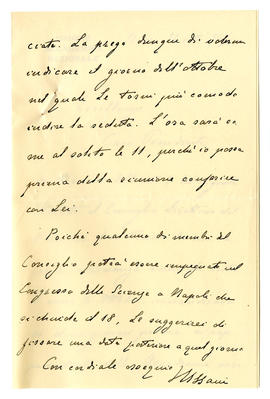 ciate. La prego dunque di volermi
indicare il giorno dell'ottobre
nel quale Le torni più comodo
indire la seduta. L'ora sarà co
me al solito le 11, perchè io possa
prima della riunione conferire
con Lei.
Poichè qualcuno dei membri del
Consiglio potrà essere impegnato nel
Congresso delle Scienze a Napoli che
si chiude il 18, Le suggerirei di
fissare una data posteriore a quel giorno
Con cordiale ossequio